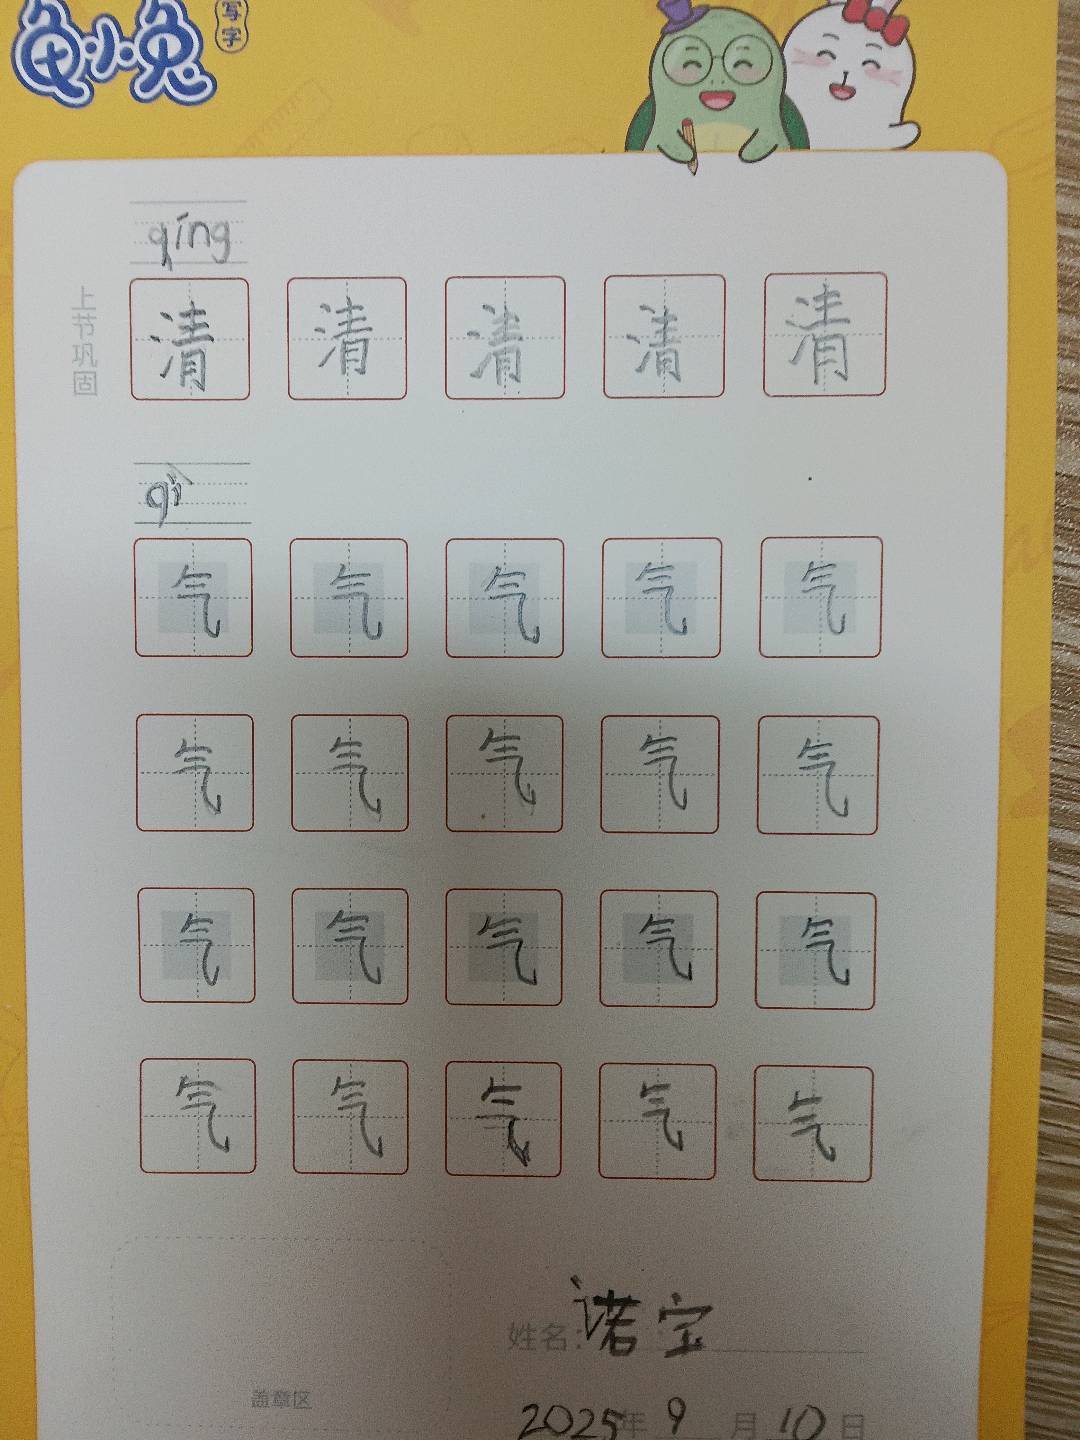 龟小兔
写字
qíng
上节巩固
清 清 清 清 清
qì
气 气 气 气 气
气 气 气 气 气
气 气 气 气 气
气 气 气 气 气
姓名：诺宝
盖章区
2025年 9 月 10 日